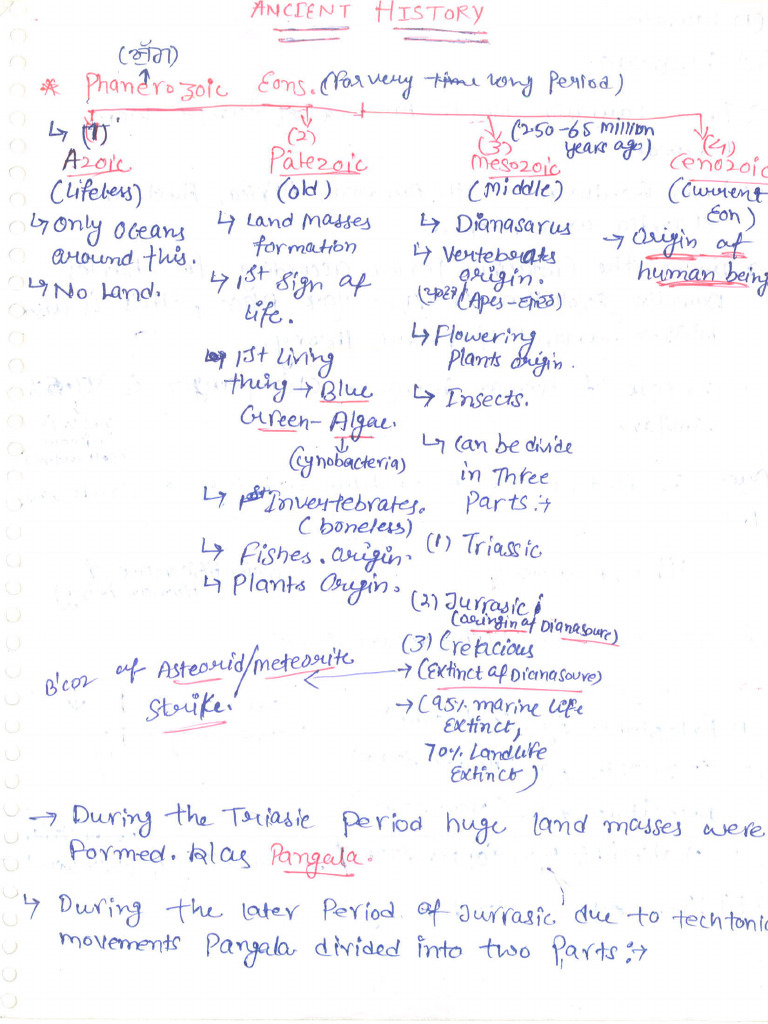 ANCIENT HISTORY
(ਅੱਗ)
* Phanerozoic Eons. (For very long Period)
↳ (1)
Azoic
(Lifeless)
↳ Only Oceans
around this.
↳ No Land.
(2)
Palezoic
(old)
↳ Land Masses
formation
↳ 1st Sign of
Life.
↳ 1st Living
thing → Blue
Green-Algae.
(cynobacteria)
↳ 1st Invertebrates.
(boneless)
↳ Fishes. origin.
↳ Plants Origin.
(3)
(250-65 million
years ago)
Mesozoic
(Middle)
↳ Dianasarus
↳ Vertebrats
origin.
(Apes-
↳ Flowering
Plants origin.
↳ Insects.
↳ Can be divide
in Three
Parts:→
(1) Triassic
(2) Jurrasic
(oringin of Dianasoure)
(3) Cretacious
→ (Extinct of Dianasoure)
→ (95% marine life
Extinct,
70% Landlife
Extinct)
(4)
Cenozoic
(Current
Eon)
→ Origin of
human being
B'coz of Asteorid/meteorite
strike.
→ During the Triasic period huge land masses were
formed. k/as Pangala.
↳ During the later Period of Jurrasic due to techtonic
movements Pangala divided into two Parts:→